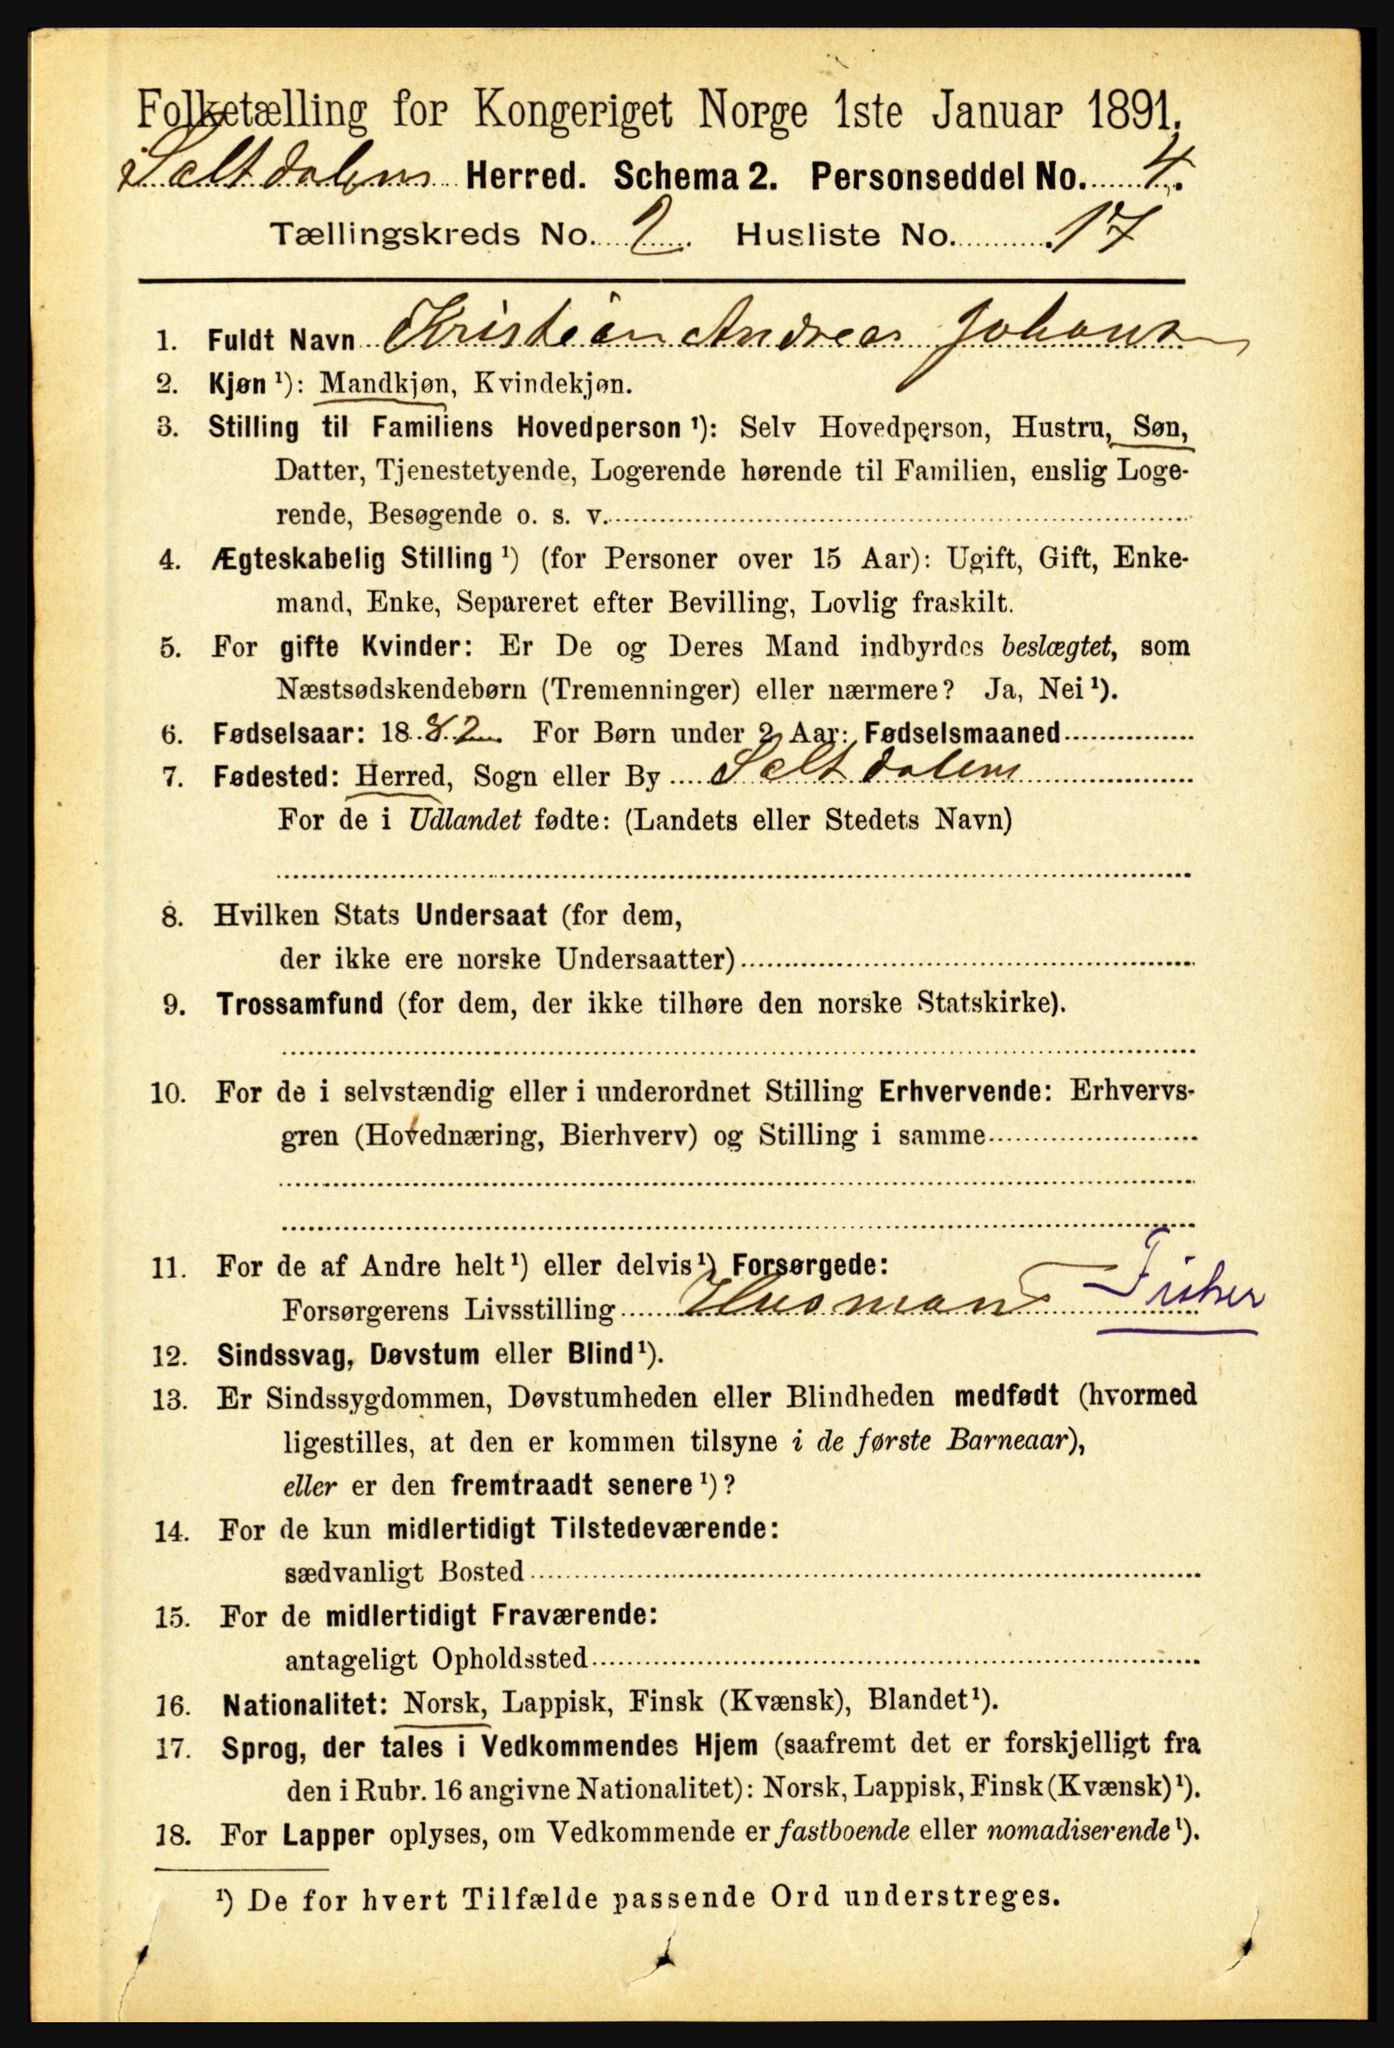 Folketælling for Kongeriget Norge 1ste Januar 1891.
Saltdalens Herred. Schema 2. Personseddel No. 4.
Tællingskreds No. 2. Husliste No. 17
1. Fuldt Navn Kristian Andreas Johans
2. Kjøn ¹): Mandkjøn, Kvindekjøn.
3. Stilling til Familiens Hovedperson ¹): Selv Hovedperson, Hustru, Søn,
Datter, Tjenestetyende, Logerende hørende til Familien, enslig Loge-
rende, Besøgende o. s. v.
4. Ægteskabelig Stilling ¹) (for Personer over 15 Aar): Ugift, Gift, Enke-
mand, Enke, Separeret efter Bevilling, Lovlig fraskilt.
5. For gifte Kvinder: Er De og Deres Mand indbyrdes beslægtet, som
Næstsødskendebørn (Tremenninger) eller nærmere? Ja, Nei ¹).
6. Fødselsaar: 1882 For Børn under 2 Aar: Fødselsmaaned
7. Fødested: Herred, Sogn eller By Saltdalens
For de i Udlandet fødte: (Landets eller Stedets Navn)
8. Hvilken Stats Undersaat (for dem,
der ikke ere norske Undersaatter)
9. Trossamfund (for dem, der ikke tilhøre den norske Statskirke).
10. For de i selvstændig eller i underordnet Stilling Erhvervende: Erhvervs-
gren (Hovednæring, Bierhverv) og Stilling i samme
11. For de af Andre helt ¹) eller delvis ¹) Forsørgede:
Forsørgerens Livsstilling Husmand Fisker
12. Sindssvag, Døvstum eller Blind ¹).
13. Er Sindssygdommen, Døvstumheden eller Blindheden medfødt (hvormed
ligestilles, at den er kommen tilsyne i de første Barneaar),
eller er den fremtraadt senere ¹)?
14. For de kun midlertidigt Tilstedeværende:
sædvanligt Bosted
15. For de midlertidigt Fraværende:
antageligt Opholdssted
16. Nationalitet: Norsk, Lappisk, Finsk (Kvænsk), Blandet ¹).
17. Sprog, der tales i Vedkommendes Hjem (saafremt det er forskjelligt fra
den i Rubr. 16 angivne Nationalitet): Norsk, Lappisk, Finsk (Kvænsk) ¹).
18. For Lapper oplyses, om Vedkommende er fastboende eller nomadiserende ¹).
¹) De for hvert Tilfælde passende Ord understreges.